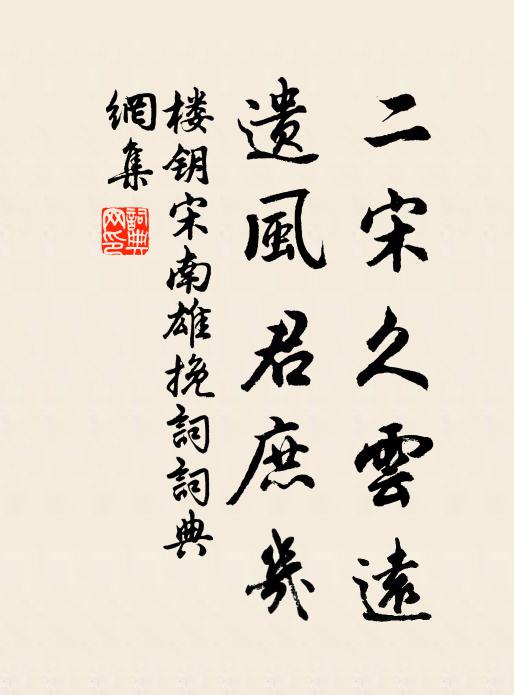 二宋久雲遠
遺風君庶幾
楼钥宋南雄挽詞詞典
網集
詞典網印